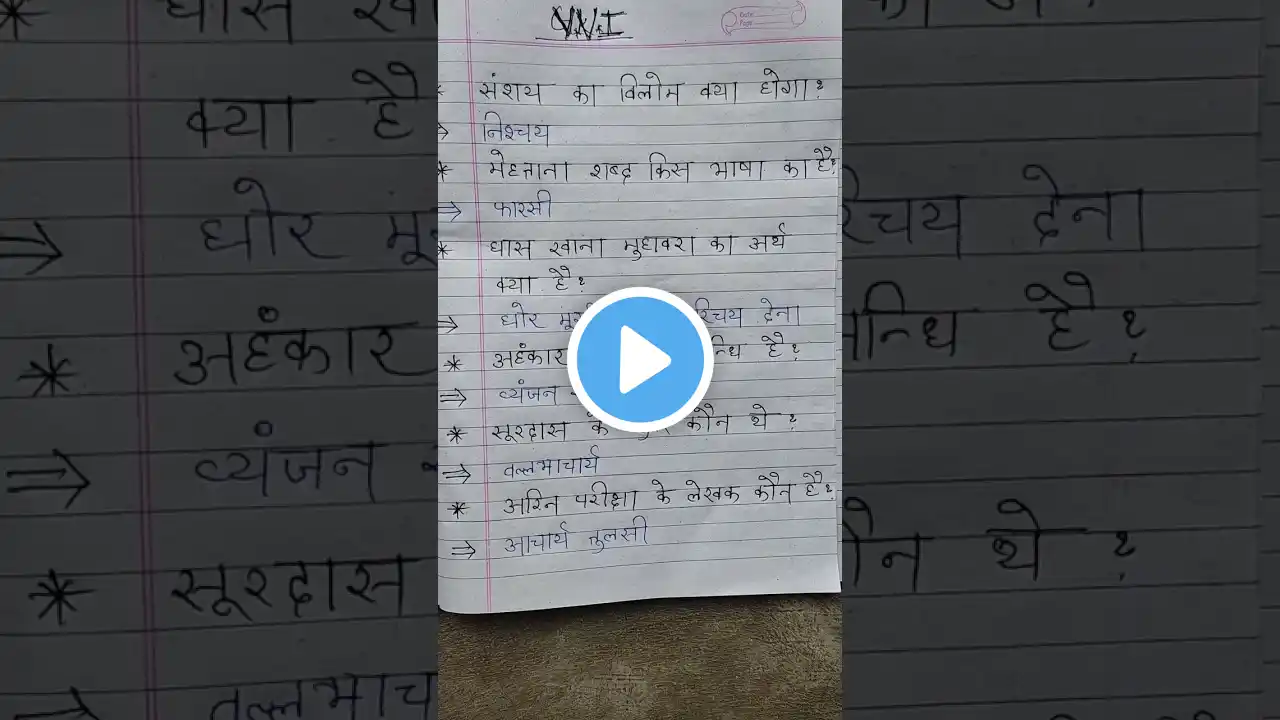 V.V.I
Date
Page
* संशय का विलोम क्या होगा?
⇒ निश्चय
* मेहनताना शब्द किस भाषा का है?
⇒ फारसी
* घास खाना मुहावरा का अर्थ
क्या है?
⇒ घोर देना
* अहंकार है?
⇒ व्यंजन
* सूरदास के कौन थे?
⇒ वल्लभाचार्य
* अग्नि परीक्षा के लेखक कौन है?
⇒ आचार्य तुलसी